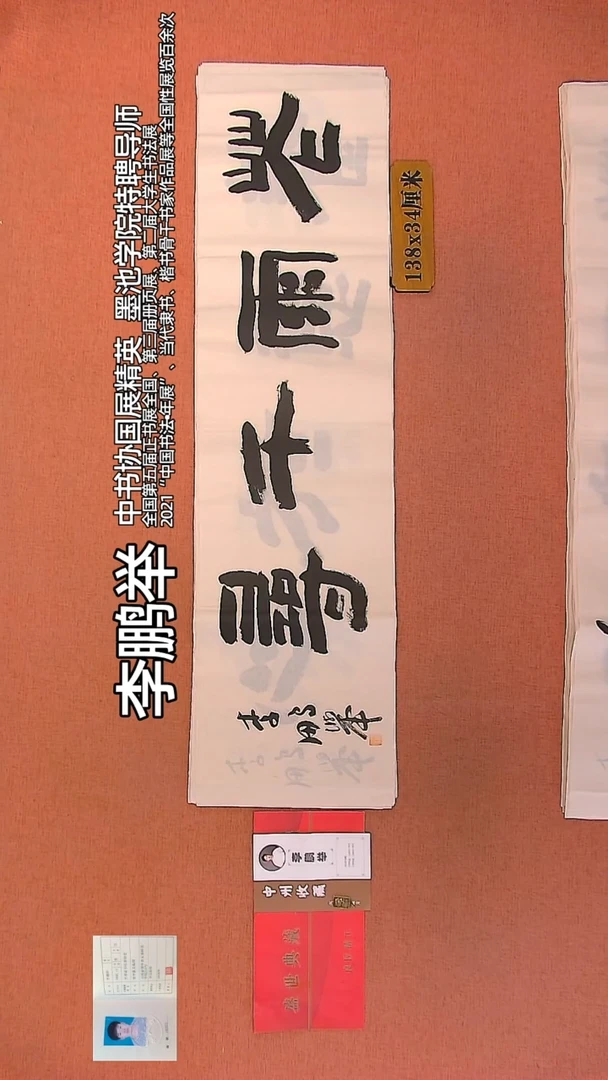 李鹏举
中书协国展精英 墨池学院特聘导师
全国第五届正书展全国、第三届册页展、第二届大学生书法展
2021 “中国书法·年展” 、当代隶书、楷书骨干书家作品展等全国性展览百余次
卷雨千尋
李鵬舉
138x34厘米
李鹏举
中州收藏
盛世典藏